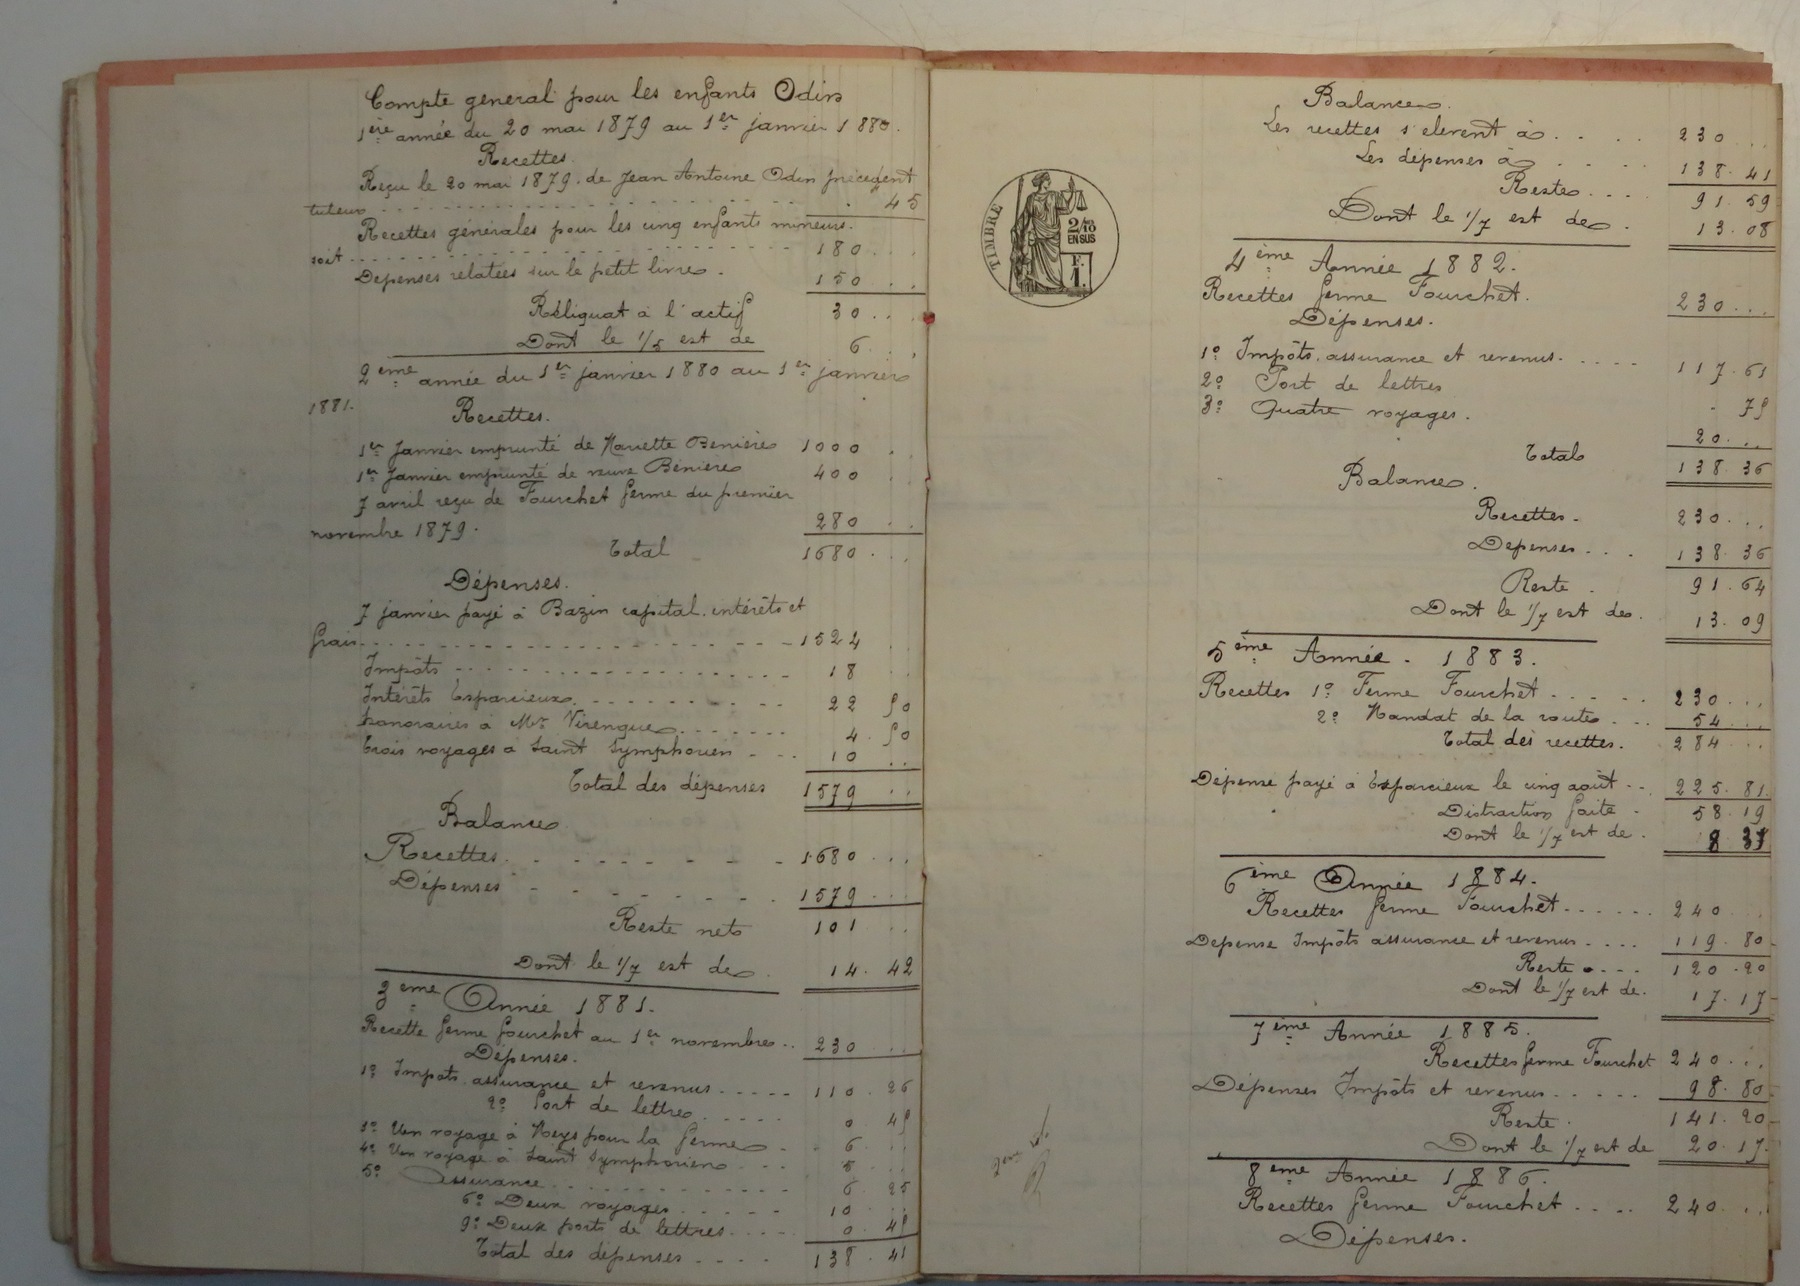 Compte general pour les enfants Odin
1ère année du 20 mai 1879 au 1er janvier 1880.
Recettes.
Reçu le 20 mai 1879. de Jean Antoine Odin précédent
tuteur 45
Recettes générales pour les cinq enfants mineurs.
soit 180
Depenses relatées sur le petit livre. 150
Réliquat à l'actif 30
Dont le 1/5 est de 6
2ème année du 1er janvier 1880 au 1er janvier
1881.
Recettes.
1er Janvier emprunté de Benière 1000
1er Janvier emprunté de veuve Benière 400
7 avril reçu de Fourchet ferme du premier
novembre 1879. 280
Total 1680
Dépenses.
7 janvier payé à Bazin capital. intérêts et
frais 1524
Impôts 18
Intérêts Esparcieux 22 50
honoraires à Mr Virengue 4. 50
trois voyages à Saint Symphorien 10
Total des dépenses 1579
Balance
Recettes. 1680
Dépenses 1579
Reste net 101
Dont le 1/7 est de 14. 42
3ème Année 1881.
Recette ferme fourchet au 1er novembre 230
Dépenses.
1º Impots assurance et revenus 110. 26
2º Port de lettre 0. 45
3º Un voyage à Meys pour la ferme 6
4º Un voyage à Saint Symphorien 5
5º Assurance 6. 25
6º Deux voyages 10
9º Deux ports de lettres 0. 45
Total des dépenses 138. 41
TIMBRE
2/10
EN SUS
F.
1.
Balance.
Les recettes s'elevent à 230
Les dépenses à 138. 41
Reste 91. 59
Dont le 1/7 est de. 13. 08
4ème Année 1882.
Recettes ferme Fourchet. 230
Dépenses.
1º Impôts. assurance et revenus. 117. 61
2º Port de lettres
3º Quatre voyages. 75
20
Total 138. 36
Balance.
Recettes. 230
Depenses 138. 36
Reste 91. 64
Dont le 1/7 est de. 13. 09
5ème Année. 1883.
Recettes 1º Ferme Fourchet 230
2º Mandat de la route 54
Total des recettes. 284
Dépense payé à Esparcieux le cinq août 225. 81
Distraction faite 58. 19
Dont le 1/7 est de. 8
6ème Année 1884.
Recettes ferme Fourchet 240
Depense Impôts assurance et revenus 119. 80
Reste 120. 20
Dont le 1/7 est de. 17. 17
7ème Année 1885.
Recettes ferme Fourchet 240
Dépenses Impôts et revenus 98. 80
Reste. 141. 20
Dont le 1/7 est de 20. 17.
8ème Année 1886.
Recettes ferme Fourchet 240
Dépenses.